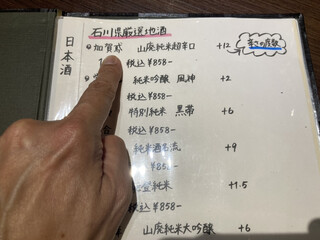 石川県厳選地酒
日本酒
加賀
山廃純米超辛口 +12
辛さの度数
税込 ¥858-
純米吟醸 風神 +2
税込 ¥858-
特別純米 黒帯 +6
税込 ¥858-
純米酒 流 +9
¥85
純米 +1.5
税込 ¥858-
山廃純米大吟醸 +6